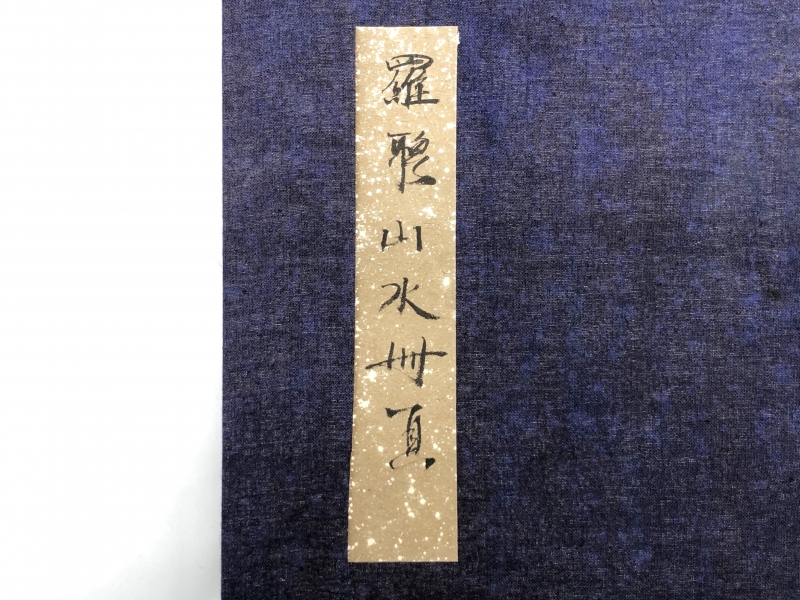 羅聘山水册頁